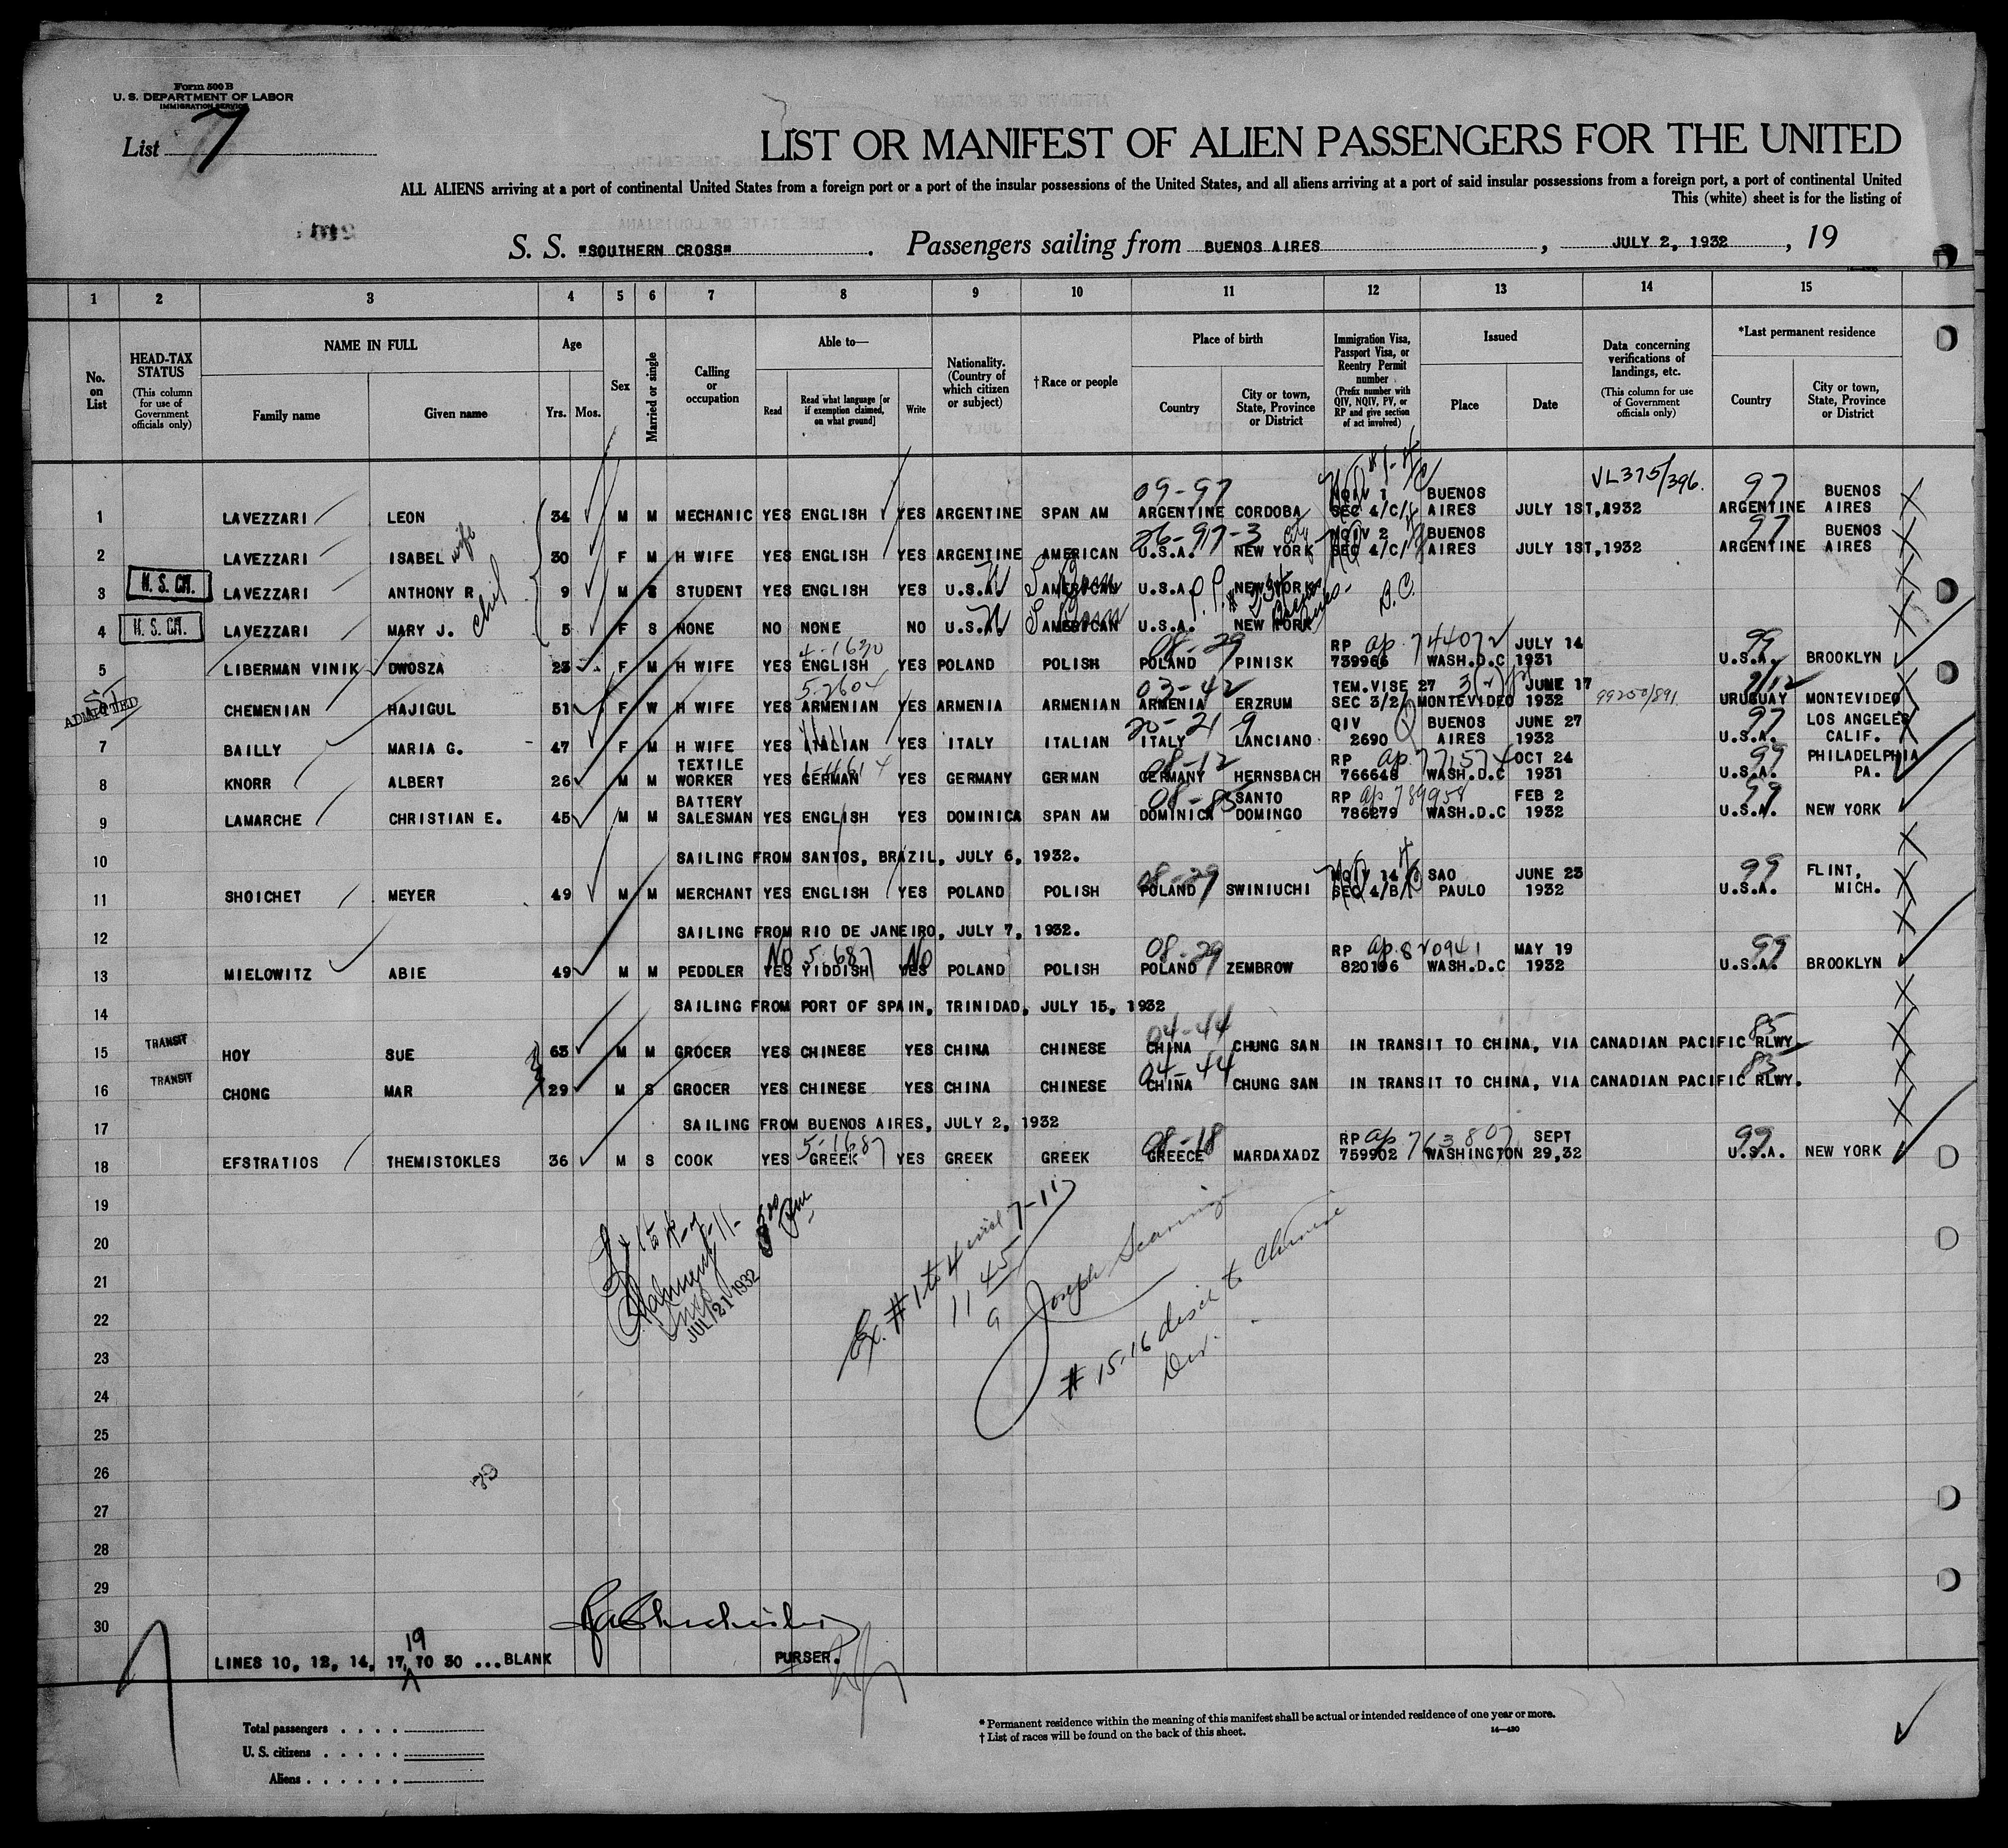 Form 500 B
U. S. DEPARTMENT OF LABOR
IMMIGRATION SERVICE
List 7
LIST OR MANIFEST OF ALIEN PASSENGERS FOR THE UNITED
ALL ALIENS arriving at a port of continental United States from a foreign port or a port of the insular possessions of the United States, and all aliens arriving at a port of said insular possessions from a foreign port, a port of continental United
This (white) sheet is for the listing of
S. S. "SOUTHERN CROSS". Passengers sailing from BUENOS AIRES, JULY 2, 1932, 19
1 2 3 4 5 6 7 8 9 10 11 12 13 14 15
No. on List
HEAD-TAX STATUS (This column for use of Government officials only)
NAME IN FULL
Family name
Given name
Age
Yrs. Mos.
Sex
Married or single
Calling or occupation
Able to—
Read
Read what language [or if exemption claimed, on what ground]
Write
Nationality. (Country of which citizen or subject)
†Race or people
Place of birth
Country
City or town, State, Province or District
Immigration Visa, Passport Visa, or Reentry Permit number (Prefix number with QIV, NQIV, PV, or RP and give section of act involved)
Issued
Place
Date
Data concerning verifications of landings, etc. (This column for use of Government officials only)
*Last permanent residence
Country
City or town, State, Province or District
09-97 VL375/396. 97
1 LAVEZZARI LEON 34 M M MECHANIC YES ENGLISH YES ARGENTINE SPAN AM ARGENTINE CORDOBA NQIV 1 SEC 4/C/ BUENOS AIRES JULY 1ST,1932 ARGENTINE BUENOS AIRES
26-97-3 97
2 LAVEZZARI ISABEL wife 30 F M H WIFE YES ENGLISH YES ARGENTINE AMERICAN U.S.A. NEW YORK NQIV 2 SEC 4/C/ BUENOS AIRES JULY 1ST,1932 ARGENTINE BUENOS AIRES
3 U.S.CIT. LAVEZZARI ANTHONY R 9 M S STUDENT YES ENGLISH YES U.S.A. AMERICAN U.S.A. NEW YORK
4 U.S.CIT. LAVEZZARI MARY J. 5 F S NONE NO NONE NO U.S.A. AMERICAN U.S.A. NEW YORK
4-1630 08-29 ap. 744072 99
5 LIBERMAN VINIK DWOSZA 23 F M H WIFE YES ENGLISH YES POLAND POLISH POLAND PINISK RP 739966 WASH.D.C JULY 14 1931 U.S.A. BROOKLYN
5-2604 03-42 3(2) 99250/891
ADMITTED CHEMENIAN HAJIGUL 51 F W H WIFE YES ARMENIAN YES ARMENIA ARMENIAN ARMENIA ERZRUM TEM.VISE 27 SEC 3/2/ MONTEVIDEO JUNE 17 1932 URUGUAY MONTEVIDEO
20-21-9 97
7 BAILLY MARIA G. 47 F M H WIFE YES ITALIAN YES ITALY ITALIAN ITALY LANCIANO QIV 2690 BUENOS AIRES JUNE 27 1932 U.S.A. LOS ANGELES CALIF.
08-12 ap. 771574 99
8 KNORR ALBERT 26 M M TEXTILE WORKER YES GERMAN YES GERMANY GERMAN GERMANY HERNSBACH RP 766648 WASH.D.C OCT 24 1931 U.S.A. PHILADELPHIA PA.
08-85 ap 789958 99
9 LAMARCHE CHRISTIAN E. 45 M M BATTERY SALESMAN YES ENGLISH YES DOMINICA SPAN AM DOMINICA SANTO DOMINGO RP 786279 WASH.D.C FEB 2 1932 U.S.A. NEW YORK
10 SAILING FROM SANTOS, BRAZIL, JULY 6, 1932.
08-29 99
11 SHOICHET MEYER 49 M M MERCHANT YES ENGLISH YES POLAND POLISH POLAND SWINIUCHI NQIV 14 SEC 4/B/ SAO PAULO JUNE 23 1932 U.S.A. FLINT, MICH.
12 SAILING FROM RIO DE JANEIRO, JULY 7, 1932.
No 5-687 No 08-29 ap. 820941 99
13 MIELOWITZ ABIE 49 M M PEDDLER YES YIDDISH YES POLAND POLISH POLAND ZEMBROW RP 820196 WASH.D.C MAY 19 1932 U.S.A. BROOKLYN
14 SAILING FROM PORT OF SPAIN, TRINIDAD, JULY 15, 1932
04-44 85
15 TRANSIT HOY SUE 63 M M GROCER YES CHINESE YES CHINA CHINESE CHINA CHUNG SAN IN TRANSIT TO CHINA, VIA CANADIAN PACIFIC RLWY.
04-44 83
16 TRANSIT CHONG MAR 29 M S GROCER YES CHINESE YES CHINA CHINESE CHINA CHUNG SAN IN TRANSIT TO CHINA, VIA CANADIAN PACIFIC RLWY.
17 SAILING FROM BUENOS AIRES, JULY 2, 1932
5-1687 08-18 ap 763807 99
18 EFSTRATIOS THEMISTOKLES 36 M S COOK YES GREEK YES GREEK GREEK GREECE MARDAXADZ RP 759902 WASHINGTON SEPT 29,32 U.S.A. NEW YORK
19
20
21
22
23
24
25
26
27
28
29
30
JUL 21 1932
Ex. #1 to 4 incl 7-11
11 45
a
Joseph
#15-16 disc'd to Chinese Div.
LINES 10, 12, 14, 17, 19 TO 30 ...BLANK
PURSER.
Total passengers
U. S. citizens
Aliens
* Permanent residence within the meaning of this manifest shall be actual or intended residence of one year or more.
† List of races will be found on the back of this sheet.
14—430